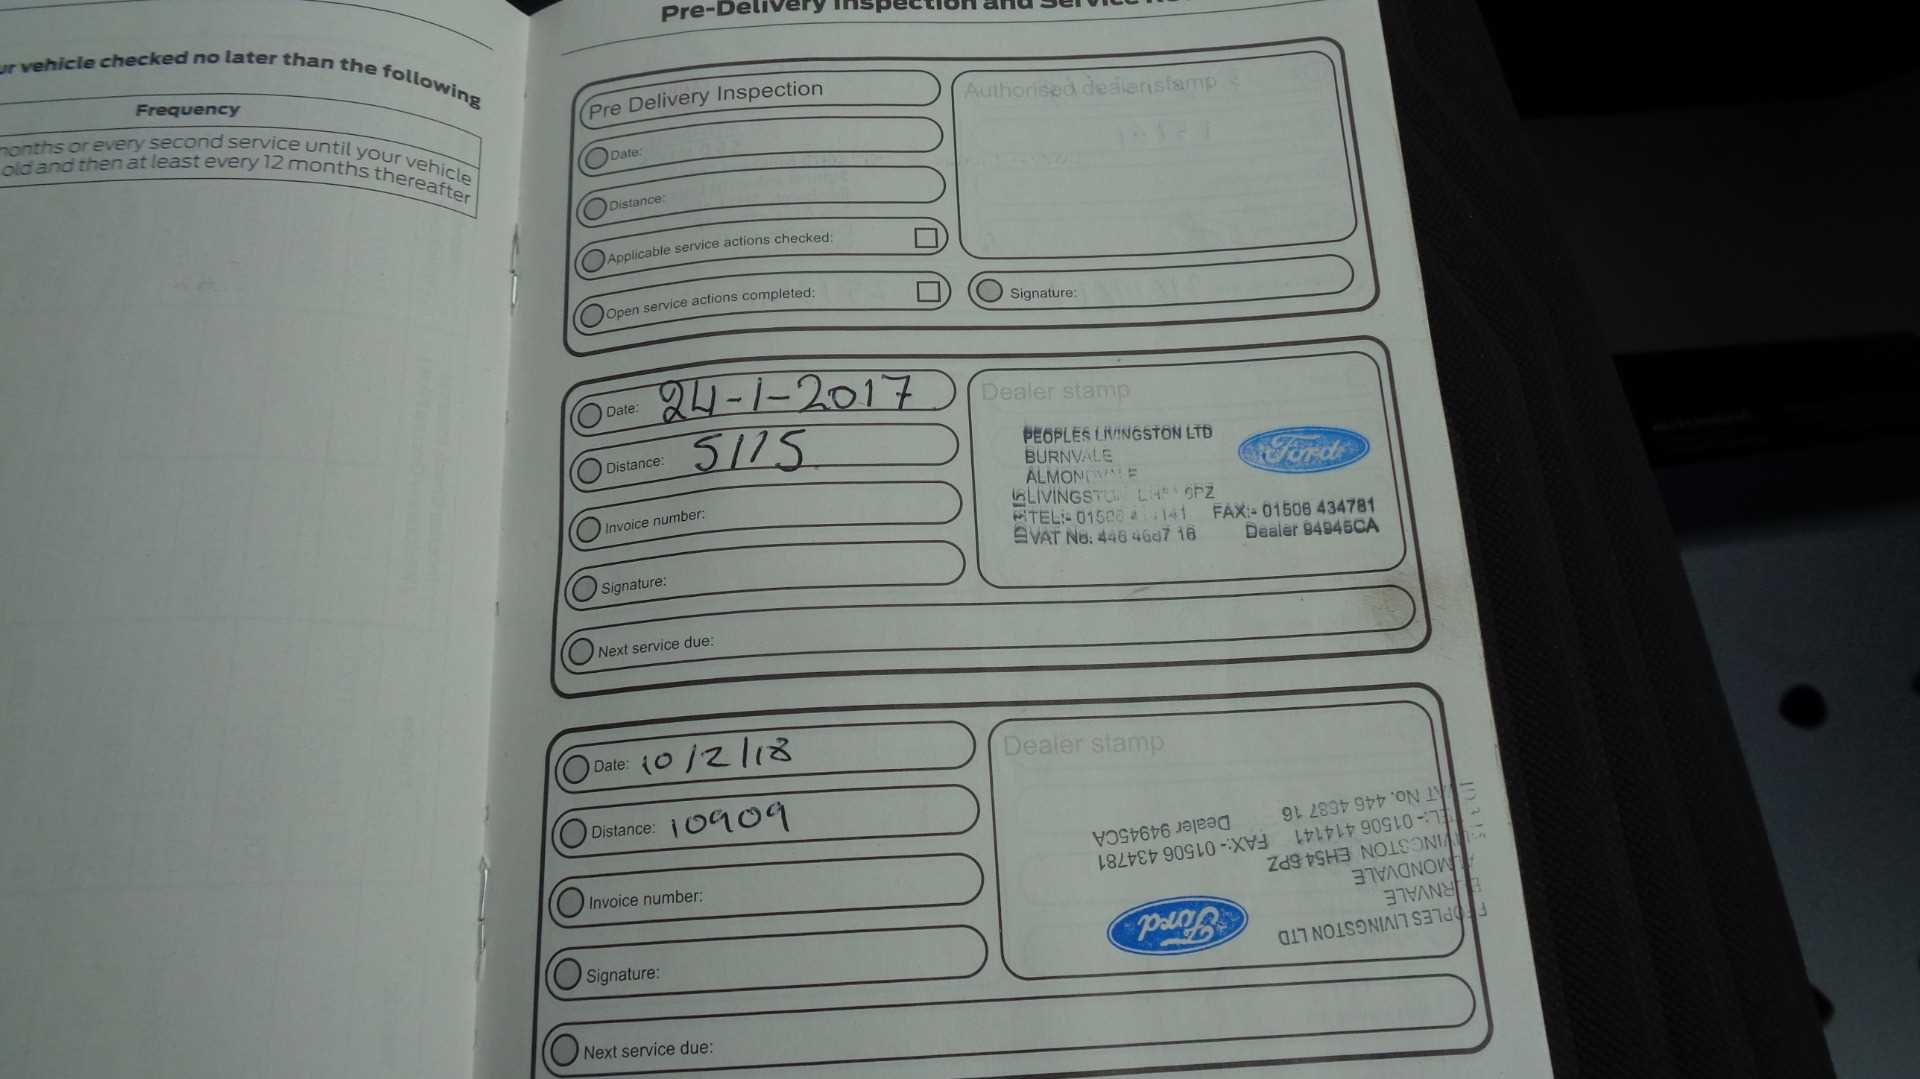 ur vehicle checked no later than the following
Frequency
months or every second service until your vehicle
old and then at least every 12 months thereafter
Pre-Delivery Inspection and Service
Pre Delivery Inspection
Date:
Distance:
Applicable service actions checked:
Open service actions completed:
Authorised dealer stamp
Signature:
Date: 24-1-2017
Distance: 5115
Invoice number:
Signature:
Next service due:
Dealer stamp
PEOPLES LIVINGSTON LTD
BURNVALE
ALMONDVALE
LIVINGSTON 6PZ
TEL:- 01506 FAX:- 01506 434781
VAT No. 446 4687 16 Dealer 94945CA
Ford
Date: 10/2/18
Distance: 10909
Invoice number:
Signature:
Next service due:
Dealer stamp
PEOPLES LIVINGSTON LTD
BURNVALE
ALMONDVALE
LIVINGSTON EH54 6PZ
TEL:- 01506 414141 FAX:- 01506 434781
VAT No. 446 4687 16 Dealer 94945CA
Ford